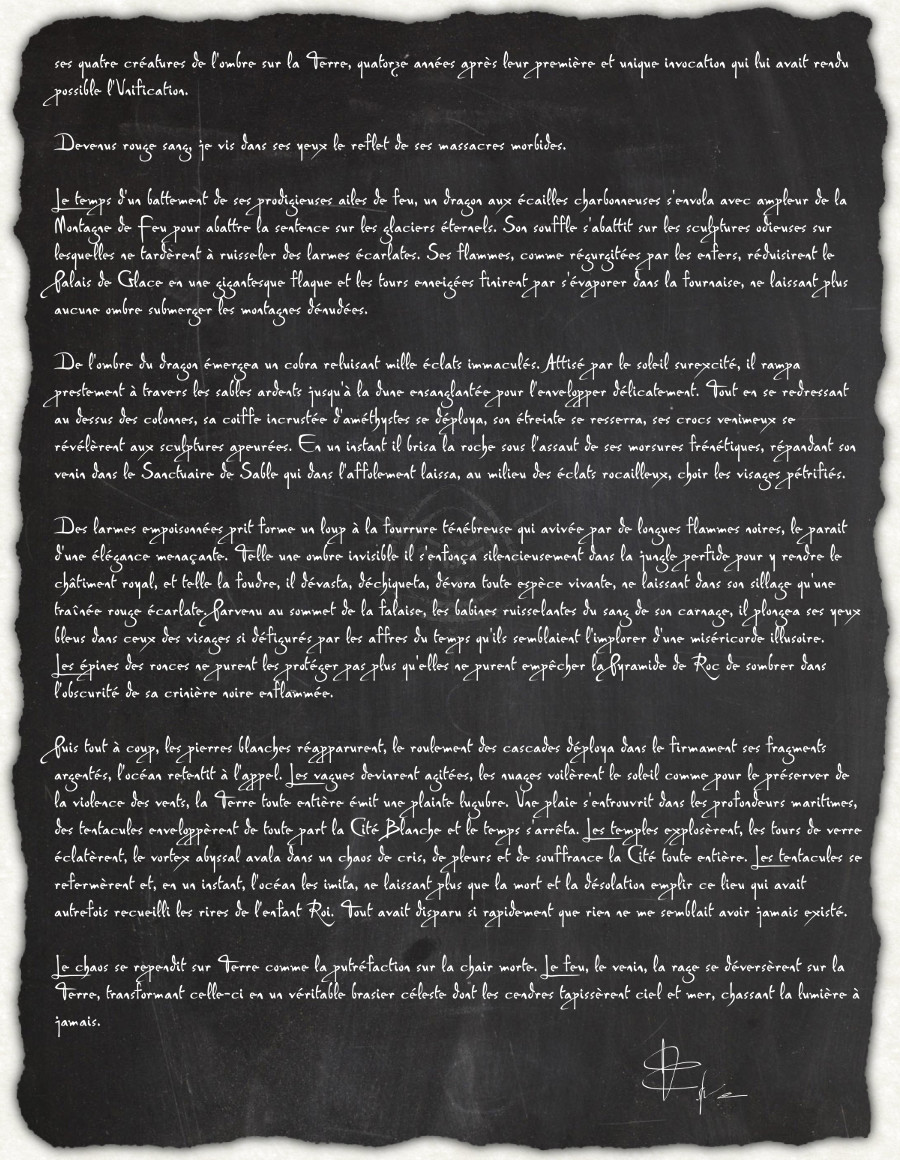 ses quatre créatures de l'ombre sur la Terre, quatorze années après leur première et unique invocation qui lui avait rendu
possible l'Unification.
Devenus rouge sang, je vis dans ses yeux le reflet de ses massacres morbides.
Le temps d'un battement de ses prodigieuses ailes de feu, un dragon aux écailles charbonneuses s'envola avec ampleur de la
Montagne de Feu pour abattre la sentence sur les glaciers éternels. Son souffle s'abattit sur les sculptures odieuses sur
lesquelles ne tardèrent à ruisseler des larmes écarlates. Ses flammes, comme régurgitées par les enfers, réduisirent le
Palais de Glace en une gigantesque flaque et les tours enneigées finirent par s'évaporer dans la fournaise, ne laissant plus
aucune ombre submerger les montagnes dénudées.
De l'ombre du dragon émergea un cobra reluisant mille éclats immaculés. Attisé par le soleil surexcité, il rampa
prestement à travers les sables ardents jusqu'à la dune ensanglantée pour l'envelopper délicatement. Tout en se redressant
au dessus des colonnes, sa coiffe incrustée d'améthystes se déploya, son étreinte se resserra, ses crocs venimeux se
révélèrent aux sculptures apeurées. En un instant il brisa la roche sous l'assaut de ses morsures frénétiques, répandant son
venin dans le Sanctuaire de Sable qui dans l'affolement laissa, au milieu des éclats rocailleux, choir les visages pétrifiés.
Des larmes empoisonnées prit forme un loup à la fourrure ténébreuse qui avivée par de longues flammes noires, le parait
d'une élégance menaçante. Telle une ombre invisible il s'enfonça silencieusement dans la jungle perfide pour y rendre le
châtiment royal, et telle la foudre, il dévasta, déchiqueta, dévora toute espèce vivante, ne laissant dans son sillage qu'une
traînée rouge écarlate. Parvenu au sommet de la falaise, les babines ruisselantes du sang de son carnage, il plongea ses yeux
bleus dans ceux des visages si défigurés par les affres du temps qu'ils semblaient l'implorer d'une miséricorde illusoire.
Les épines des ronces ne purent les protéger pas plus qu'elles ne purent empêcher la Pyramide de Roc de sombrer dans
l'obscurité de sa crinière noire enflammée.
Puis tout à coup, les pierres blanches réapparurent, le roulement des cascades déploya dans le firmament ses fragments
argentés, l'océan retentit à l'appel. Les vagues devinrent agitées, les nuages voilèrent le soleil comme pour le préserver de
la violence des vents, la Terre toute entière émit une plainte lugubre. Une plaie s'entrouvrit dans les profondeurs maritimes,
des tentacules enveloppèrent de toute part la Cité Blanche et le temps s'arrêta. Les temples explosèrent, les tours de verre
éclatèrent, le vortex abyssal avala dans un chaos de cris, de pleurs et de souffrance la Cité toute entière. Les tentacules se
refermèrent et, en un instant, l'océan les imita, ne laissant plus que la mort et la désolation emplir ce lieu qui avait
autrefois recueilli les rires de l'enfant Roi. Tout avait disparu si rapidement que rien ne me semblait avoir jamais existé.
Le chaos se rependit sur Terre comme la putréfaction sur la chair morte. Le feu, le venin, la rage se déversèrent sur la
Terre, transformant celle-ci en un véritable brasier céleste dont les cendres tapissèrent ciel et mer, chassant la lumière à
jamais.